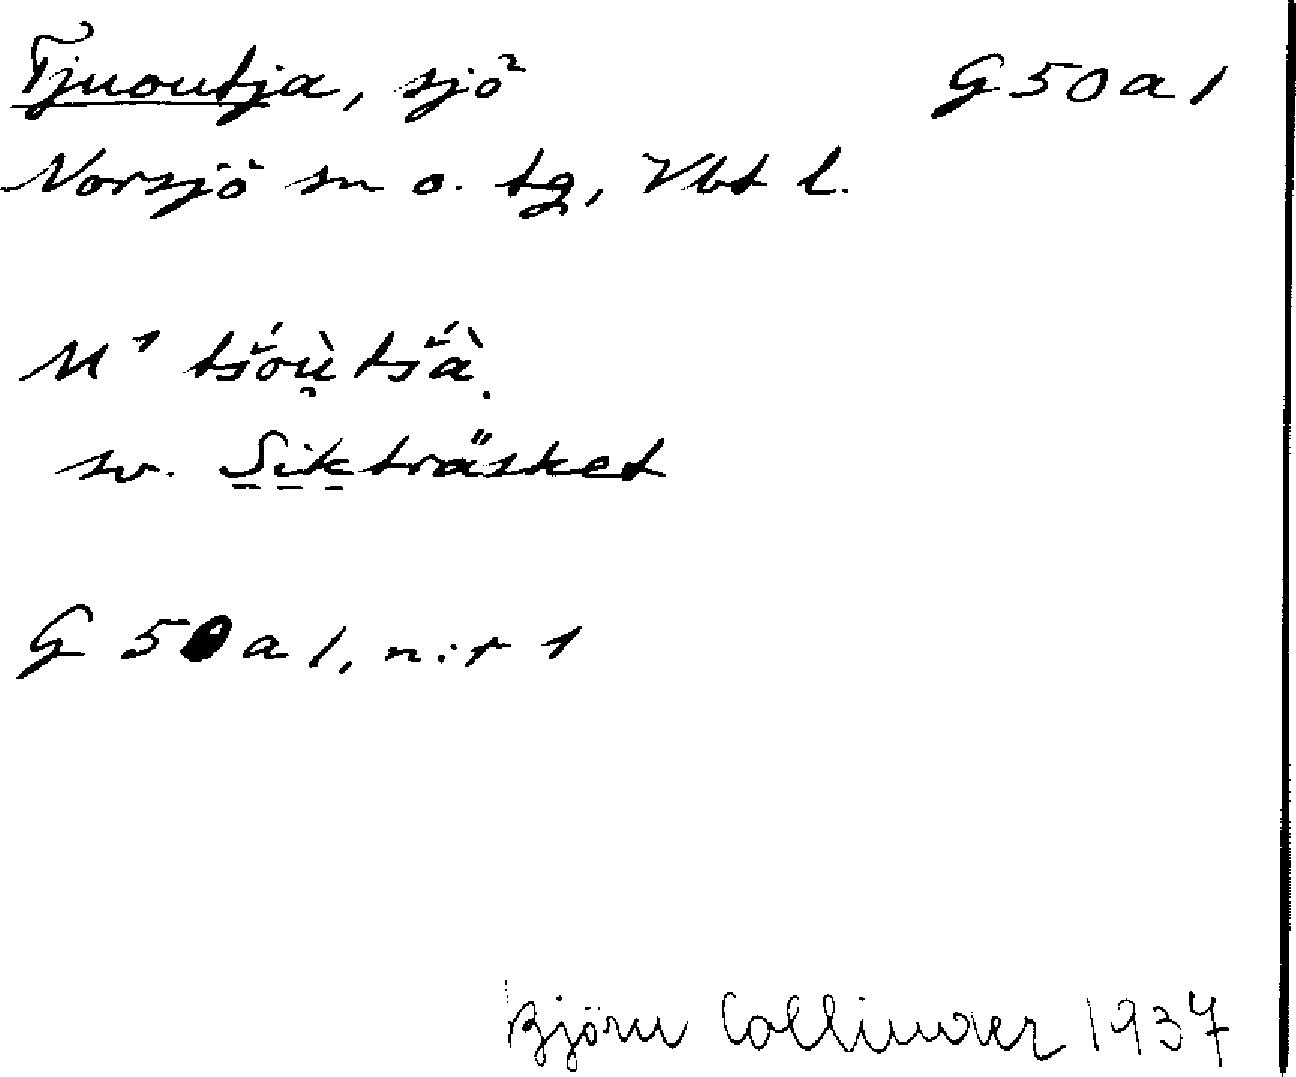 Tjuoutja, sjö G50a1
Norsjö sn o. tg, Vbt l.
sv. Sikträsket
G 50a1, n:r 1
Björn Collinder 1937